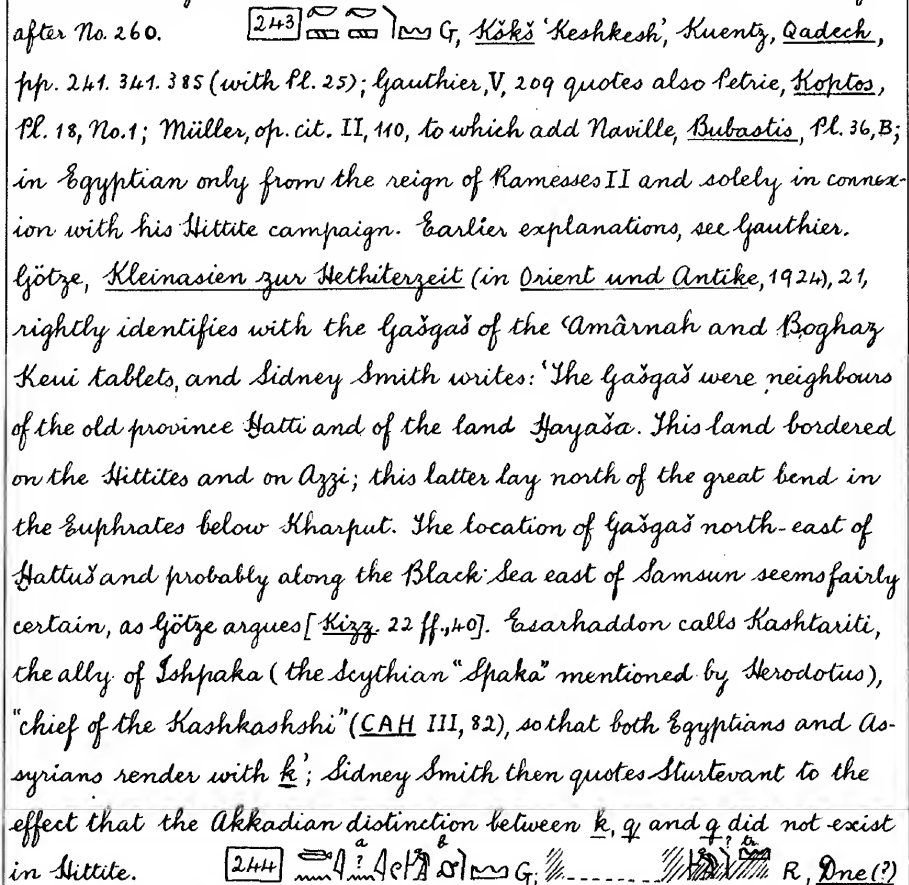 after No. 260. 243 G, Kškš 'Keshkesh', Kuentz, Qadech,
pp. 241. 341. 385 (with Pl. 25); Gauthier, V, 209 quotes also Petrie, Koptos,
Pl. 18, No. 1; Müller, op. cit. II, 110, to which add Naville, Bubastis, Pl. 36, B;
in Egyptian only from the reign of Ramesses II and solely in connex-
ion with his Hittite campaign. Earlier explanations, see Gauthier.
Götze, Kleinasien zur Hethiterzeit (in Orient und Antike, 1924), 21,
rightly identifies with the Gašgaš of the ʿAmârnah and Boghaz
Keui tablets, and Sidney Smith writes: 'The Gašgaš were neighbours
of the old province Ḫatti and of the land Ḫayaša. This land bordered
on the Hittites and on Azzi; this latter lay north of the great bend in
the Euphrates below Kharput. The location of Gašgaš north-east of
Ḫattuš and probably along the Black Sea east of Samsun seems fairly
certain, as Götze argues [Kizz. 22 ff., 40]. Esarhaddon calls Kashtariti,
the ally of Ishpaka (the Scythian "Spaka" mentioned by Herodotus),
"chief of the Kashkashshi" (CAH III, 82), so that both Egyptians and As-
syrians render with k'; Sidney Smith then quotes Sturtevant to the
effect that the Akkadian distinction between k, g and q did not exist
in Hittite. 244 G; R, Dne(?)